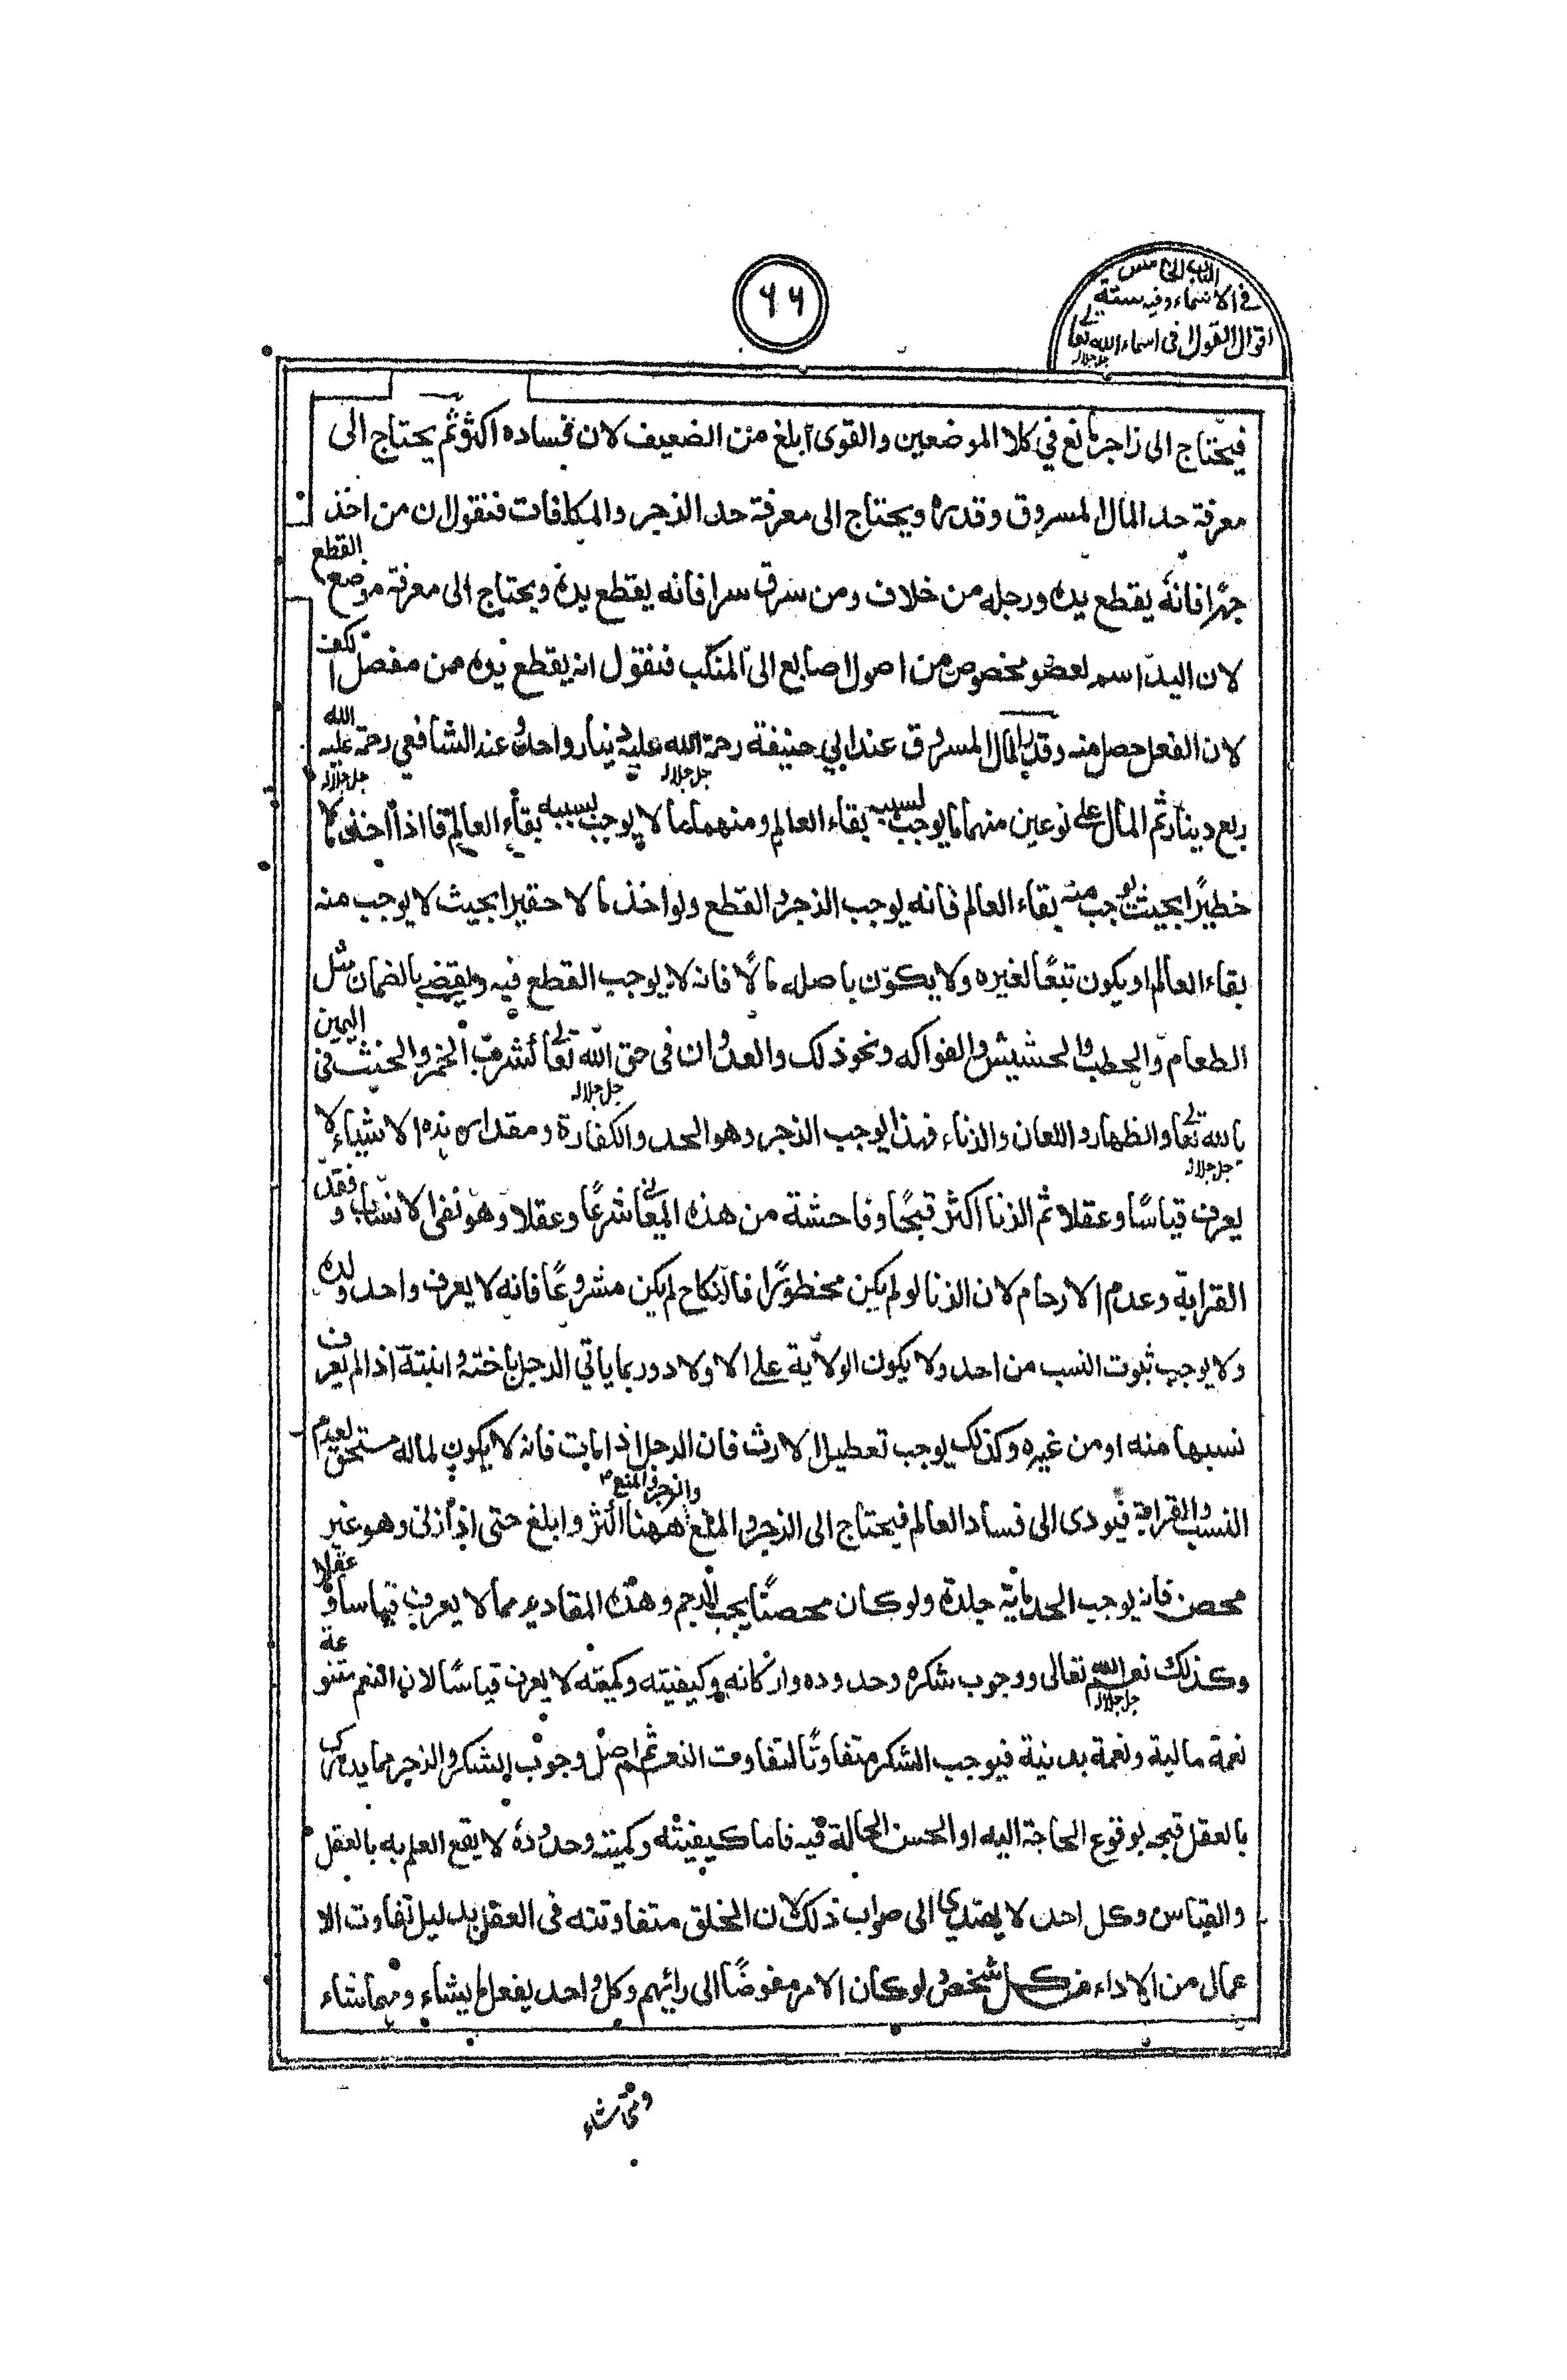 الباب الخامس
في الاسماء وفيه ستة
اقوال القول في اسماء الله تعالى
جل جلاله
٦٦
فيحتاج الى زاجر مانع في كلا الموضعين والقوى ابلغ من الضعيف لان فساده اكثر ثم يحتاج الى
معرفة حد المال المسروق وقدره ويحتاج الى معرفة حد الذجر والمكافات فنقول ان من اخذ
جهرًا فانه يقطع يده ورجله من خلاف ومن سرق سرا فانه يقطع يده ويحتاج الى معرفة موضع القطع
لان اليد اسم لعضو مخصوص من اصول اصابع الى المنكب فنقول انه يقطع يده من مفصل الكف
لان الفعل حصل منه وقدر المال المسروق عند ابي حنيفة رحمة الله عليه دينار واحد وعند الشافعي رحمة الله عليه
جل جلاله جل جلاله
ربع دينار ثم المال على نوعين منهما ما يوجب لسببه بقاء العالم ومنهما ما لا يوجب بسببه بقاء العالم فاذا اخذ مالا
خطيرًا بحيث يوجب منه بقاء العالم فانه يوجب الذجر والقطع ولو اخذ مالا حقيرا بحيث لا يوجب منه
بقاء العالم او يكون تبعًا لغيره ولا يكون باصله مالًا فانه لا يوجب القطع فيه ويقضي بالضمان مثل
الطعام والحطب والحشيش والفواكه ونحو ذلك والعدوان في حق الله تعالى كشرب الخمر والحنث في اليمين
جل جلاله
بالله تعالى والظهار واللعان والزناء فهذا يوجب الذجر وهو الحد والكفارة ومقدار هذه الاشياء لا
جل جلاله
يعرف قياسًا وعقلا ثم الذنا اكثر قبحًا وفاحشة من هذه المعاني شرعًا وعقلا وهو نفى الانساب وفقد
القرابة وعدم الارحام لان الذنا لو لم يكن محظورًا فالنكاح لم يكن مشروعًا فانه لا يعرف واحد ولده
ولا يوجب ثبوت النسب من احد ولا يكون الولاية على الاولاد وربما ياتي الرجل باخته وابنته اذا لم يعرف
نسبها منه او من غيره وكذلك يوجب تعطيل الارث فان الرجل اذا مات فانه لا يكون لماله مستحق لعدم
النسب والقرابة فيودى الى فساد العالم فيحتاج الى الذجر والمنع والزجر والمنع ههنا اكثر وابلغ حتى اذا زنى وهو غير
محصن فانه يوجب الحد مائة جلدة ولو كان محصنًا يجب الرجم وهذه المقادير مما لا يعرف قياسا وعقلا
وكذلك نعم الله تعالى ووجوب شكره وحدوده واركانه وكيفيته وكميته لا يعرف قياسًا لان النعم متنوعة
جل جلاله
نعمة مالية ونعمة بدنية فيوجب الشكر متفاوتًا لتفاوت النعم ثم اصل وجوب الشكر والذجر مما يدرك
بالعقل قبحه بوقوع الحاجة اليه او الحسن الحالة فيه فاما كيفيته وكميته وحدوده لا يقع العلم به بالعقل
والقياس وكل احد لا يهتدى الى صواب ذلك لان الخلق متفاوتته في العقل بدليل تفاوت الا
عمال من الاداء من كل شخص لو كان الامر مفوضًا الى رائيهم وكل واحد يفعل ما يشاء ومهما شاء
ومتى شاء